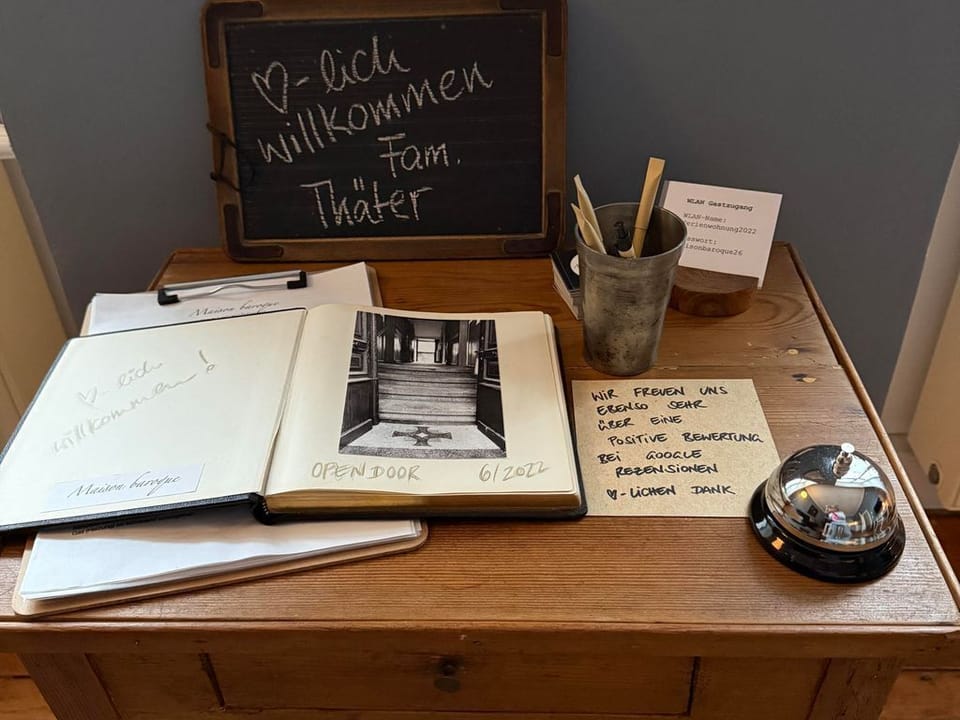 ♡-lich
willkommen
Fam.
Thäter
WLAN Gastzugang
WLAN-Name:
ferienwohnung2022
Passwort:
maisonbaroque26
Maison baroque
♡-lich
willkommen!
Maison baroque
OPEN DOOR 6/2022
WIR FREUEN UNS
EBENSO SEHR
ÜBER EINE
POSITIVE BEWERTUNG
BEI GOOGLE
REZENSIONEN
♡-LICHEN DANK